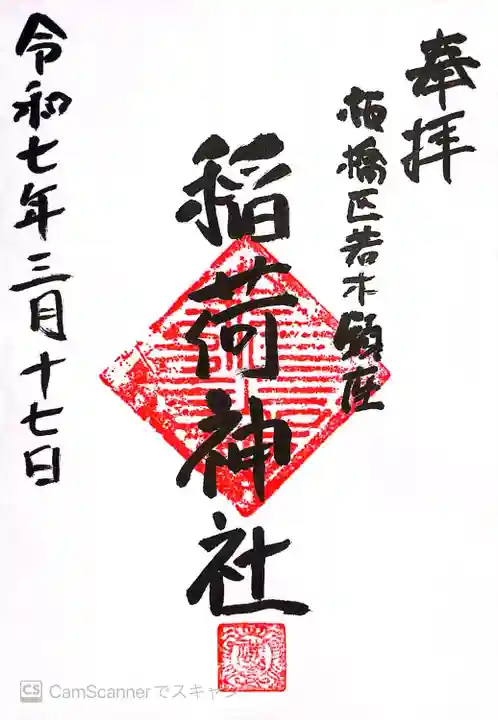 奉拝
板橋区若木鎮座
稲荷神社
令和七年三月十七日
CS CamScannerでスキャン